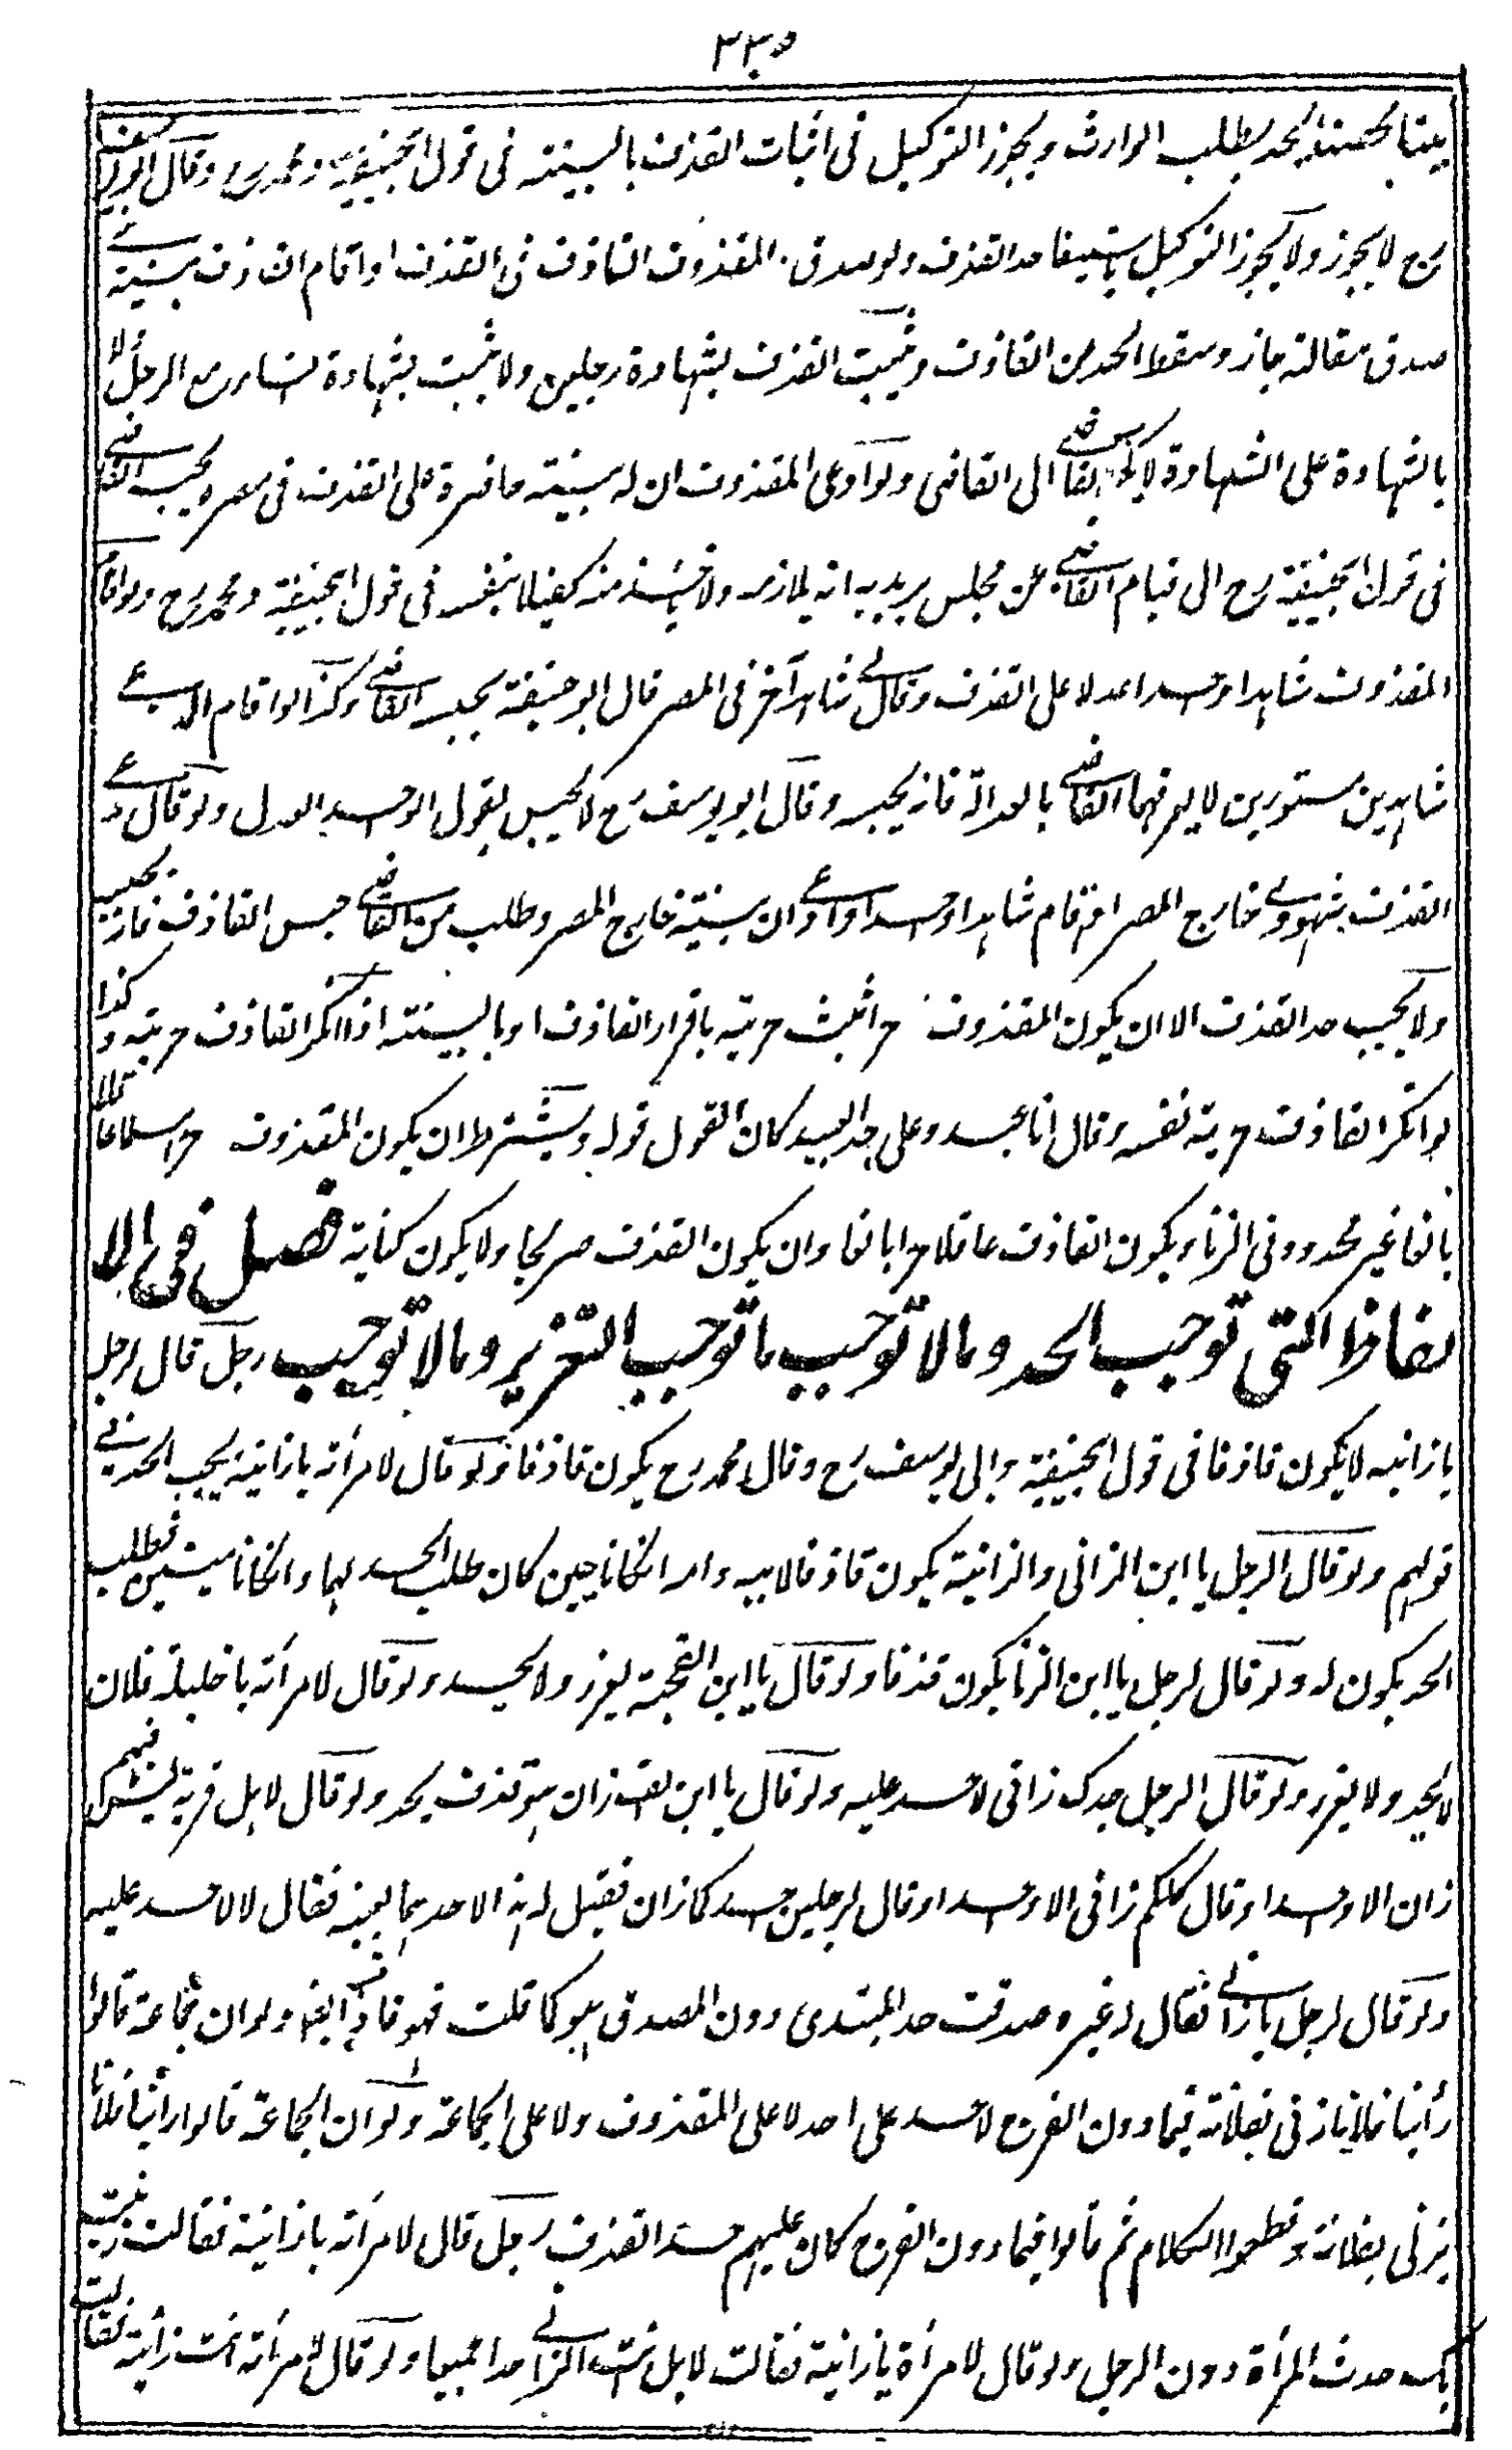 ٢٢٥
ميتا محصنا يحد بطلب الوارث ويجوز التوكيل فى اثبات القذف بالبينة فى قول ابيحنيفة ومحمد رح وقال ابو يوسف
رح لا يجوز ولا يجوز التوكيل باستيفاء حد القذف ولو صدق المقذوف القاذف فى القذف او اقام القاذف بينة على
صدق مقالته جاز وسقط الحد من القاذف ويثبت القذف بشهادة رجلين ولا يثبت بشهادة نساء مع الرجل ولا
بالشهادة على الشهادة لا كتاب القاضى الى القاضى ولو ادعى المقذوف ان له بينة حاضرة على القذف فى مصره يحبس القاضى
فى قول ابيحنيفة رح الى قيام القاضى عن مجلس يريد به انه يلازمه ولا يأخذ منه كفيلا بنفسه فى قول ابيحنيفة ومحمد رح ولو اقام
المقذوف شاهدا واحدا عدلا على القذف وقال لى شاهد آخر فى المصر قال ابو حنيفة يحبسه القاضى وكذا لو اقام المدعى
شاهدين مستورين لا يعرفهما القاضى بالعدالة فانه يحبسه وقال ابو يوسف رح لا يحبس بقول الواحد العدل ولو قال مدعى
القذف شهودى خارج المصر او اقام شاهدا واحدا وادعى ان بينته خارج المصر وطلب من القاضى حبس القاذف فانه لا يحبسه
ولا يجب حد القذف الا ان يكون المقذوف حرا تثبت حريته باقرار القاذف او بالبينة اذا انكر القاذف حريته وكذا
لو انكر القاذف حرية نفسه وقال انا عبد وعلى حد العبيد كان القول قوله ويشترط ان يكون المقذوف حرا مسلما عاقلا
بالغا غير محدود فى الزنا ويكون القاذف عاقلا حرا بالغا وان يكون القذف صريحا ولا يكون كناية فصل فى الا
لفاظ التى توجب الحد وما لا توجب ما توجب التعزير وما لا توجب رجل قال لرجل
يا زانيه لا يكون قاذفا فى قول ابيحنيفة وابى يوسف رح وقال محمد رح يكون قاذفا ولو قال لامرأته يا زانية يجب الحد فى
قولهم ولو قال الرجل يا ابن الزانى والزانية يكون قاذفا لابيه وامه انكانا حيين كان طلب الحد لهما وانكانا ميتين فطلب
الحد يكون له ولو قال لرجل يا ابن الزنا يكون قذفا ولو قال يا ابن القحبة يعزر ولا يحد ولو قال لامرأته يا خليلة فلان
لا يحد ولا يعزر ولو قال الرجل جدك زانى لا حد عليه ولو قال يا ابن الف زان هو قذف يحد ولو قال لاهل قرية ليس فيهم
زان الا واحدا وقال كلكم زانى الا واحدا وقال لرجلين احدكما زان فقيل له هذا لاحدهما بعينه فقال لا لا حد عليه
ولو قال لرجل يا زانى فقال له غيره صدقت حد المبتدى دون المصدق هو كما قلت فهو قاذف ايضا ولو ان جماعة قالوا
رأينا فلانا يزنى بفلانة فيما دون الفرج لا حد على احد لا على المقذوف ولا على الجماعة ولو ان الجماعة قالوا رأينا فلانا
يزنى بفلانة وقطعوا الكلام ثم قالوا فيما دون الفرج كان عليهم حد القذف رجل قال لامرأته يا زانية فقالت زنيت
بك حدت المرأة دون الرجل ولو قال لامرأة يا زانية فقالت لا بل انت الزانى حدا جميعا ولو قال لامرأته انت زانية فقالت